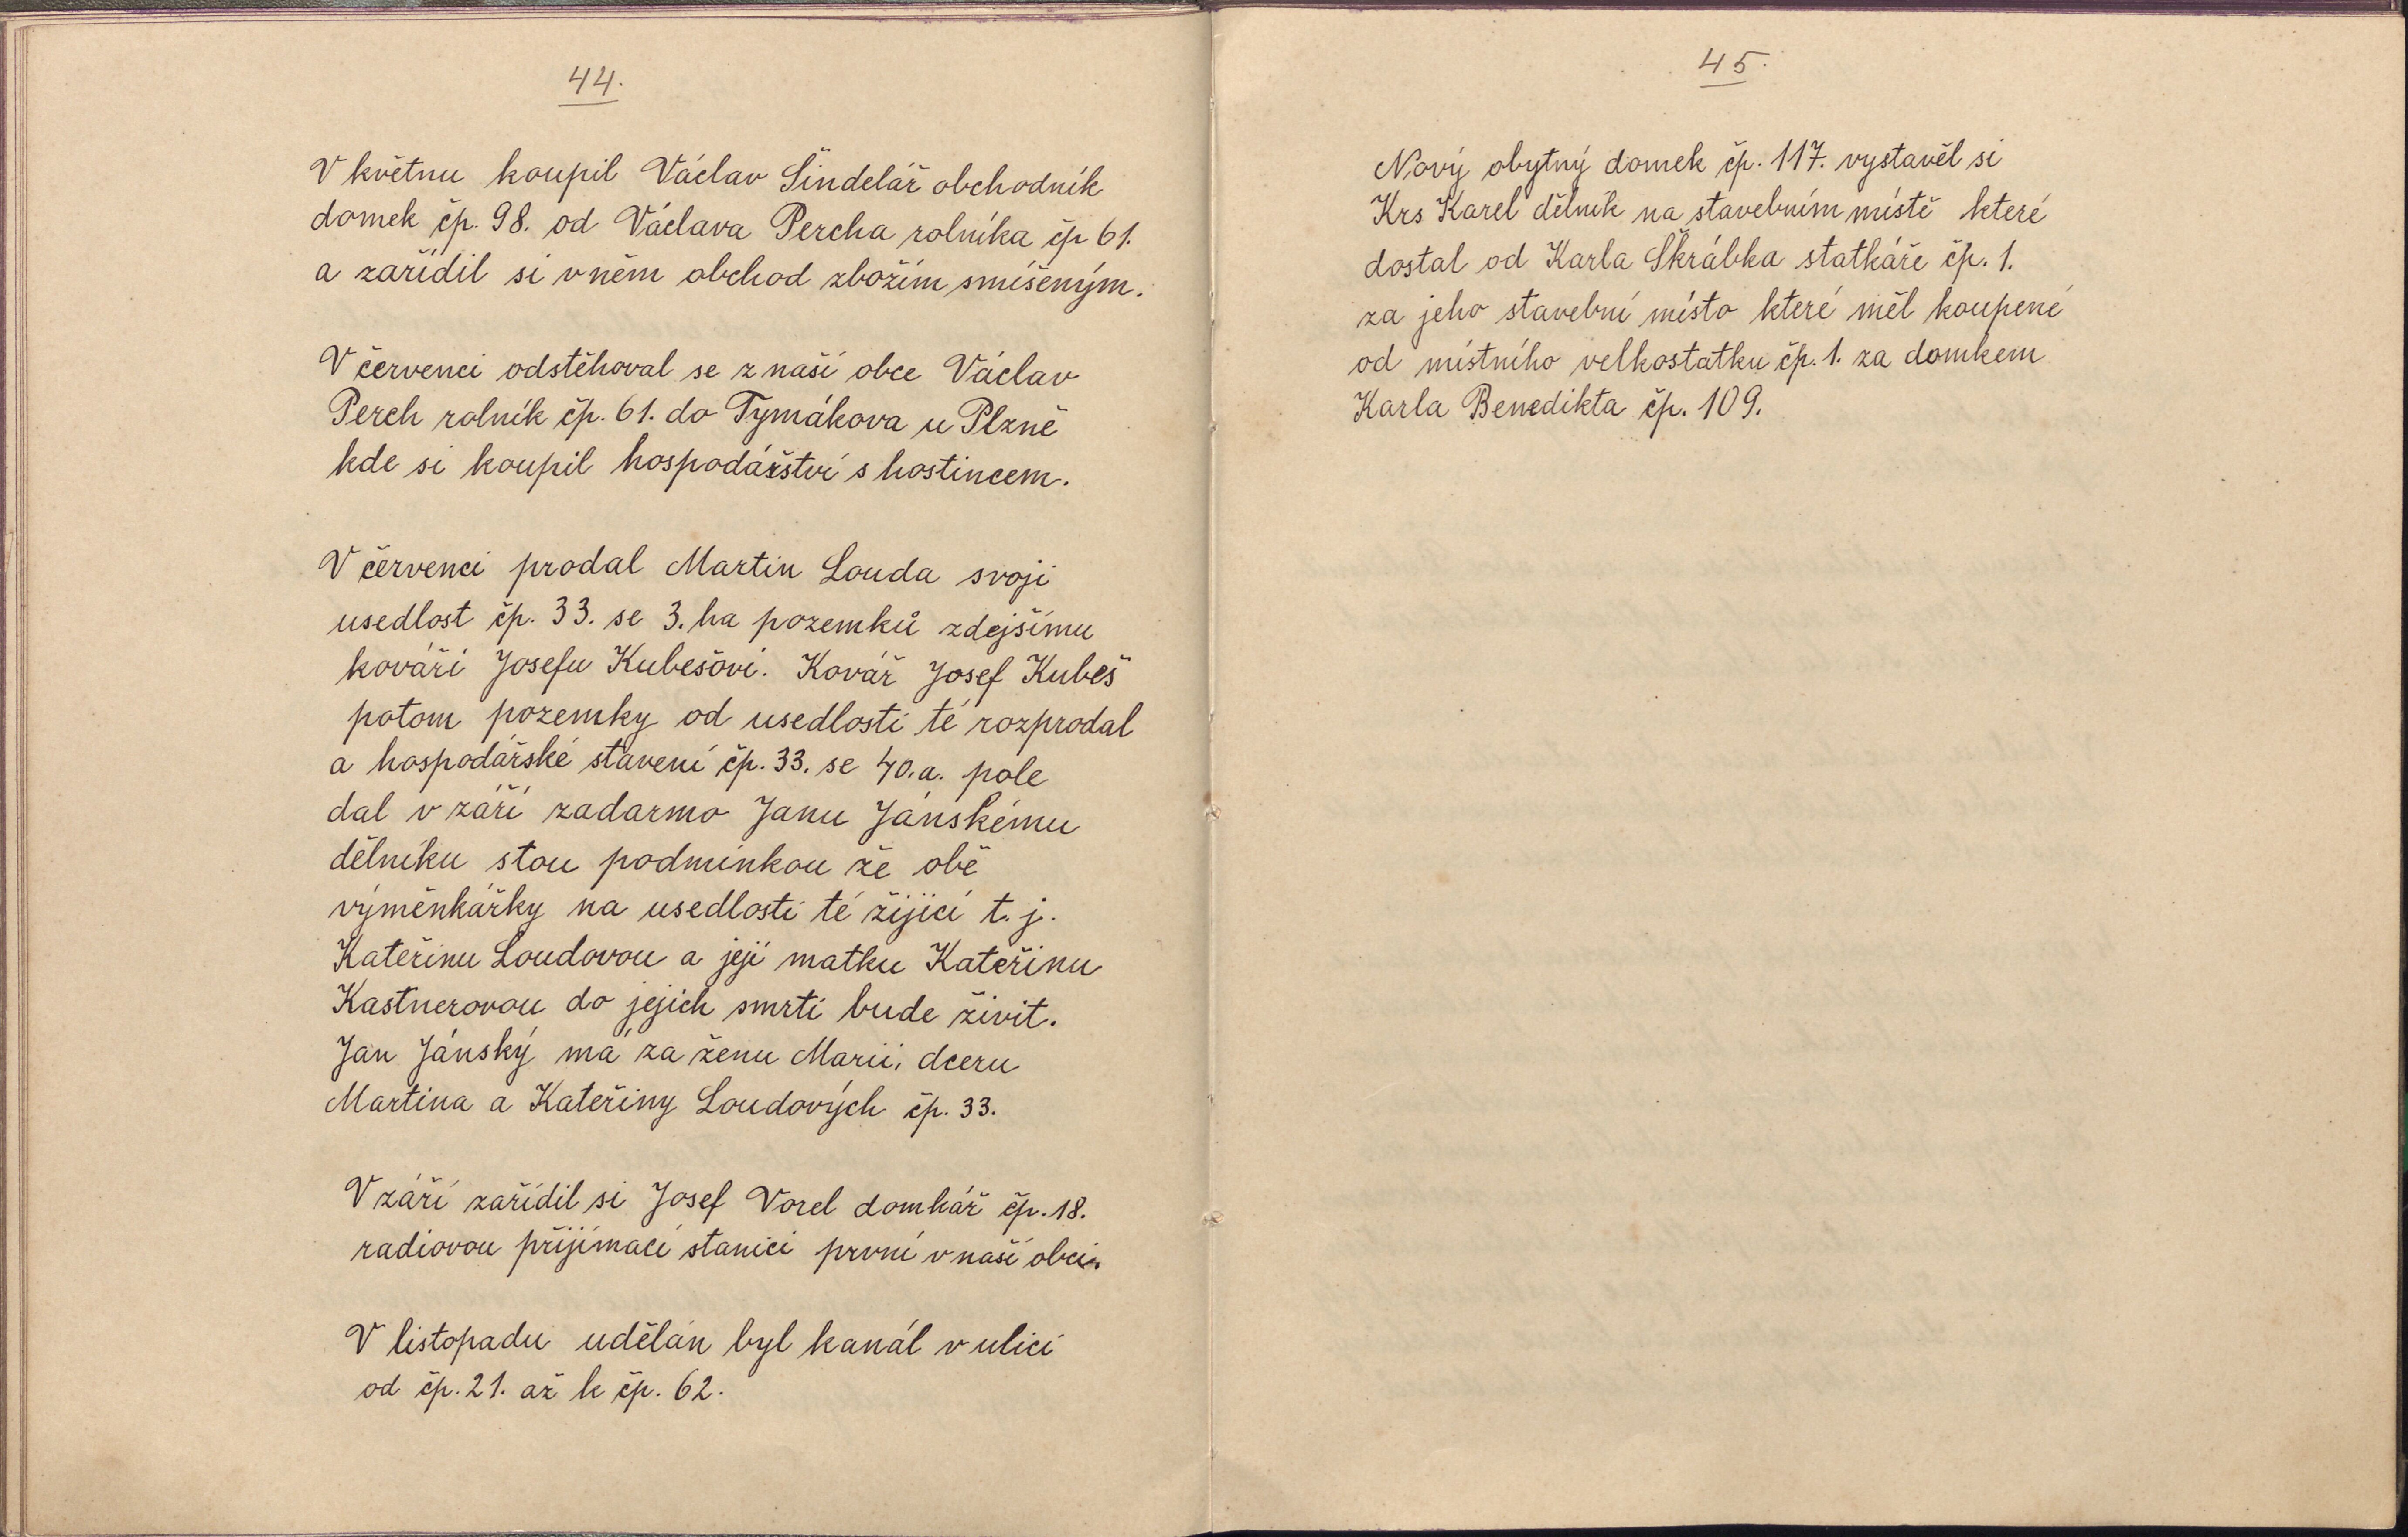 44.
V květnu koupil Václav Šindelář obchodník
domek čp. 98. od Václava Percha rolníka čp 61.
a zařídil si v něm obchod zbožím smíšeným.
V červenci odstěhoval se z naší obce Václav
Perch rolník čp. 61. do Tymákova u Plzně
kde si koupil hospodářství s hostincem.
V červenci prodal Martin Louda svoji
usedlost čp. 33. se 3. ha pozemků zdejšímu
kováři Josefu Kubešovi. Kovář Josef Kubeš
potom pozemky od usedlosti té rozprodal
a hospodářské stavení čp. 33. se 40. a. pole
dal v září zadarmo Janu Jánskému
dělníku stou podmínkou že obě
výměnkářky na usedlosti té žijící t. j.
Kateřinu Loudovou a její matku Kateřinu
Kastnerovou do jejich smrti bude živit.
Jan Jánský má za ženu Marii, dceru
Martina a Kateřiny Loudových čp. 33.
V září zařídil si Josef Vorel domkář čp. 18.
radiovou přijímací stanici první v naší obci.
V listopadu udělán byl kanál v ulici
od čp. 21. až k čp. 62.
45.
Nový obytný domek čp. 117. vystavěl si
Krs Karel dělník na stavebním místě které
dostal od Karla Škrábka statkáře čp. 1.
za jeho stavební místo které měl koupené
od místního velkostatku čp. 1. za domkem
Karla Benedikta čp. 109.